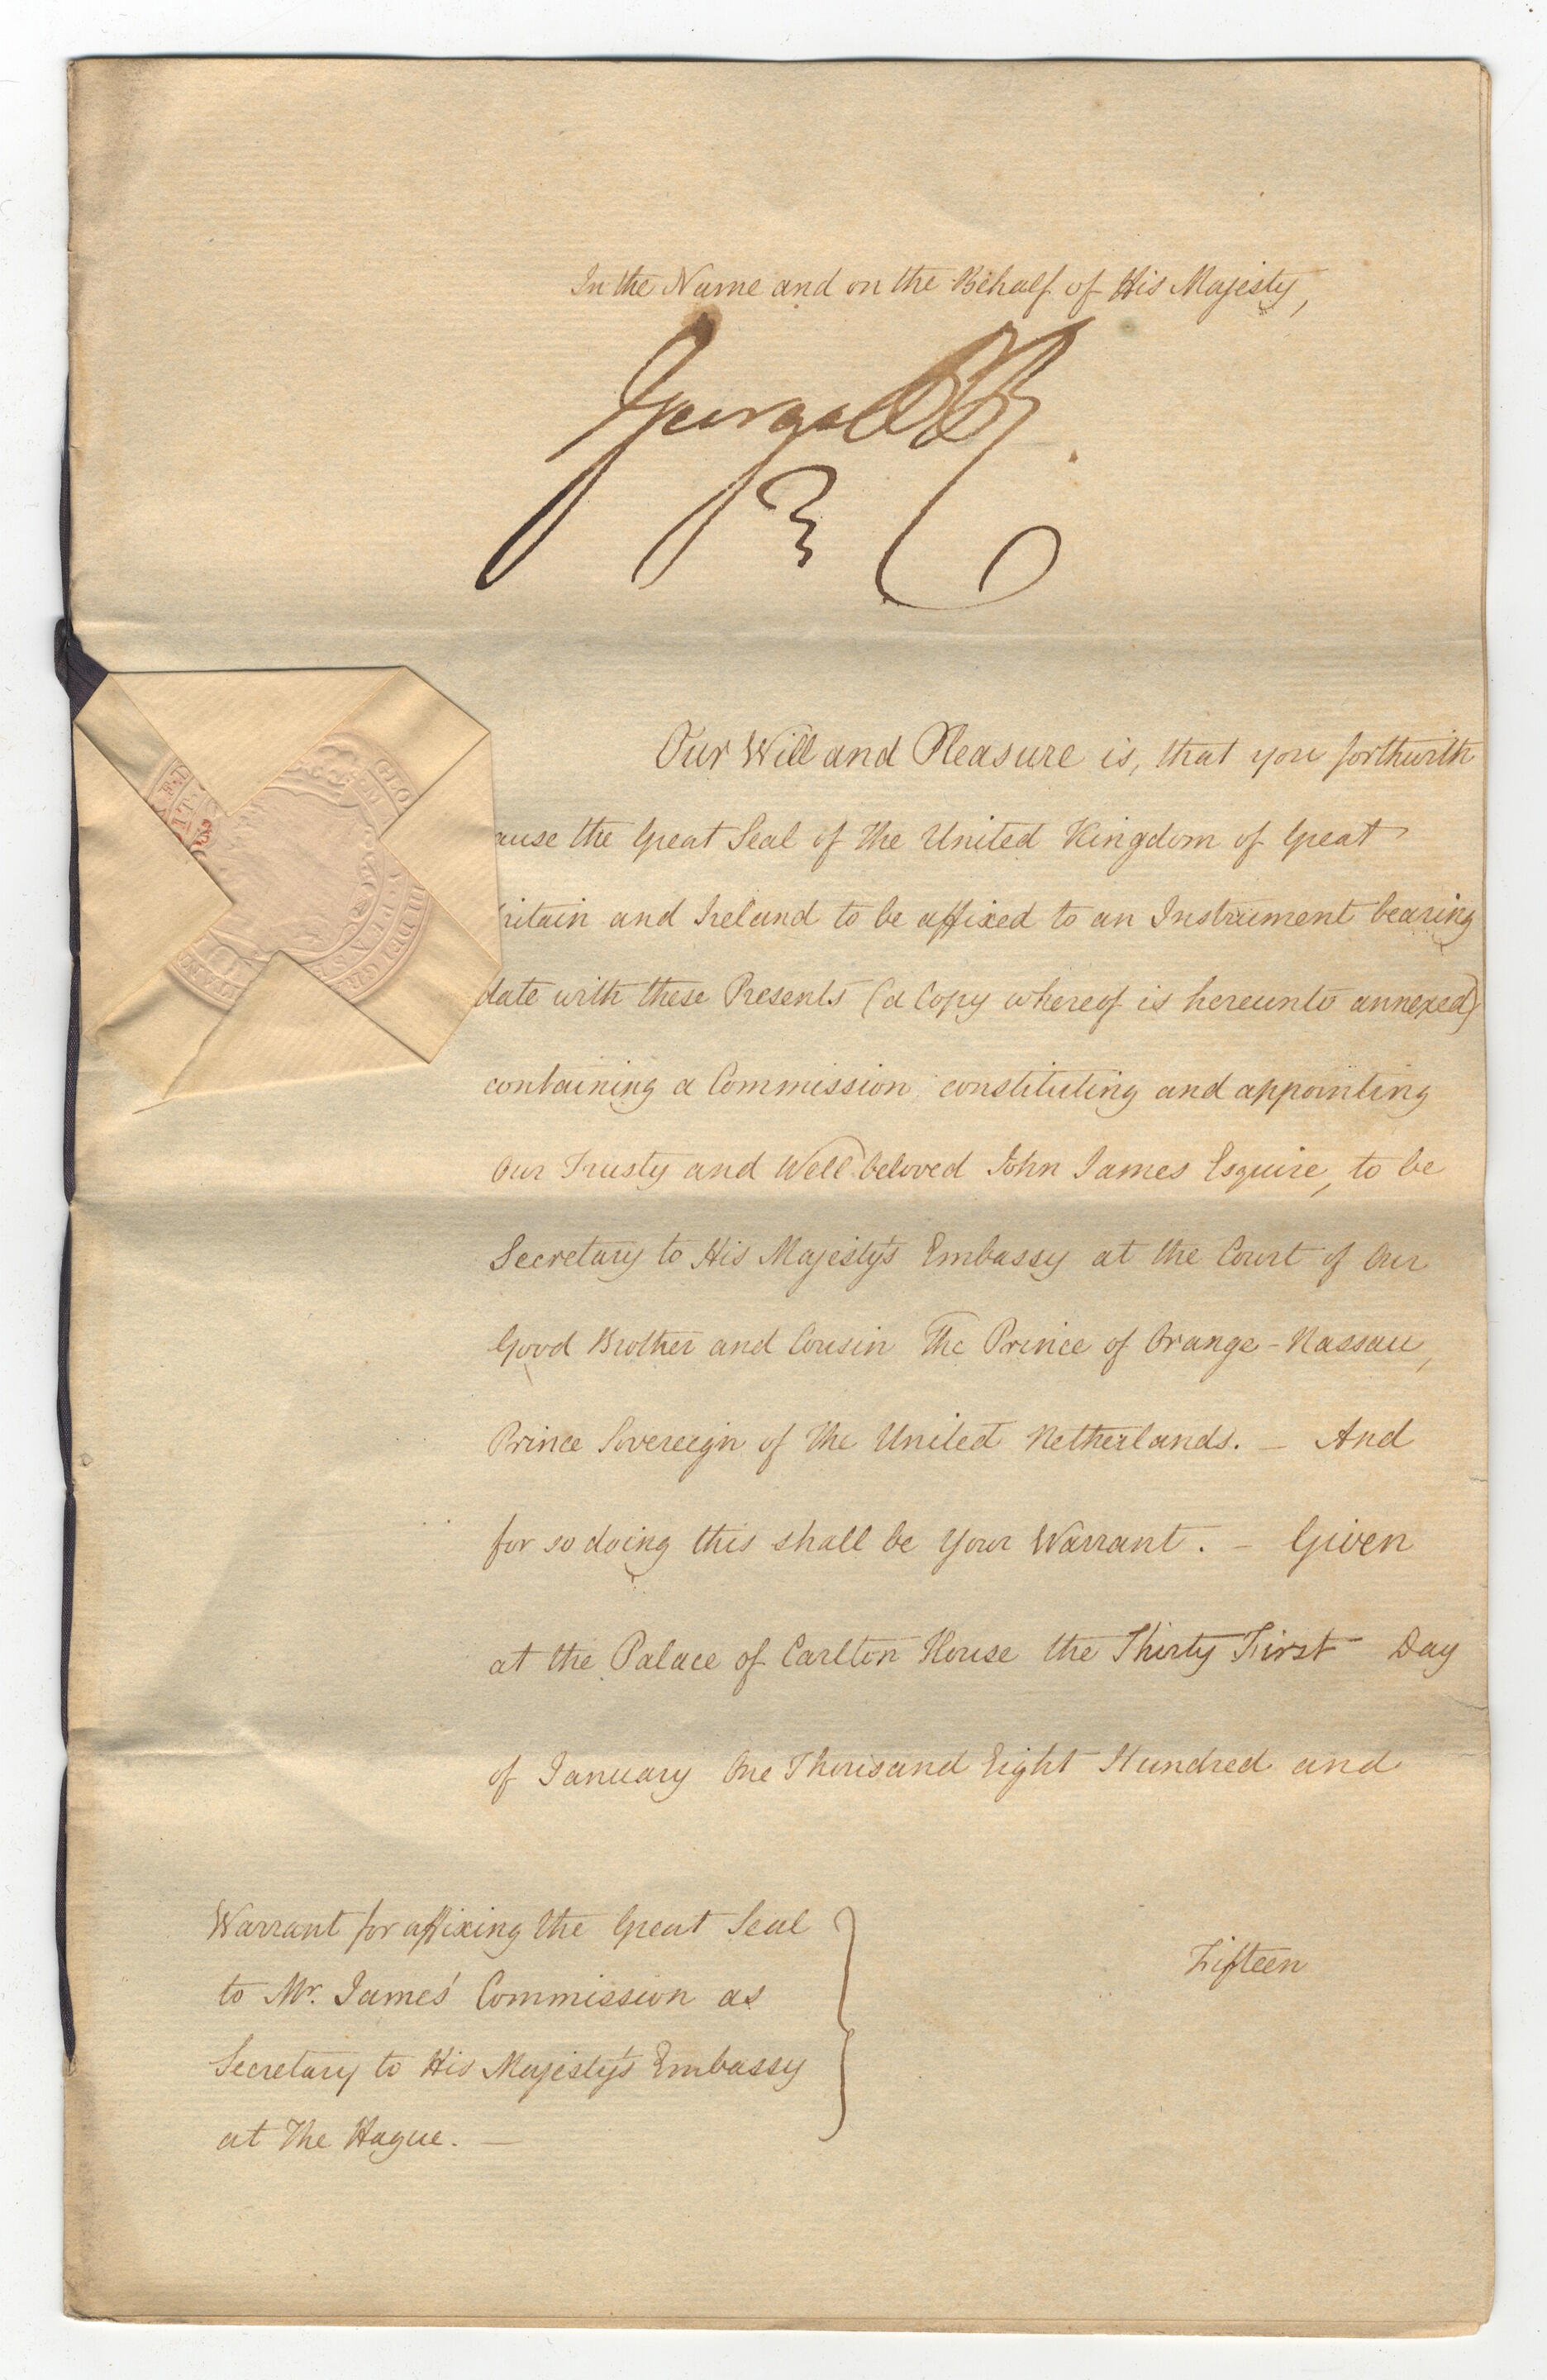 In the Name and on the Behalf of His Majesty,
George P R
Our Will and Pleasure is, that you forthwith
ause the Great Seal of the United Kingdom of Great
ritain and Ireland to be affixed to an Instrument bearing
date with these Presents (a Copy whereof is hereunto annexed)
containing a Commission constituting and appointing
Our Trusty and Well beloved John James Esquire, to be
Secretary to His Majesty's Embassy at the Court of Our
Good Brother and Cousin The Prince of Orange-Nassau,
Prince Sovereign of the United Netherlands. - And
for so doing this shall be Your Warrant. - Given
at the Palace of Carlton House the Thirty First Day
of January One Thousand Eight Hundred and
Fifteen
Warrant for affixing the Great Seal
to Mr. James' Commission as
Secretary to His Majesty's Embassy
at The Hague. -